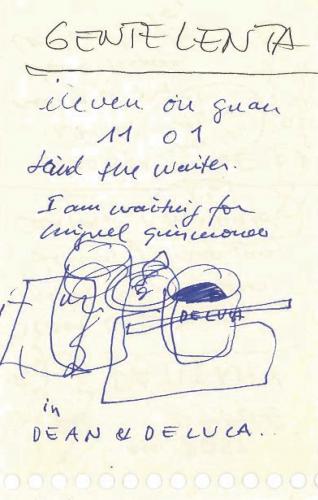 GENTE LENTA
eleven on
11 01
said the waiter.
I am waiting for
miguel
DELUCA
in
DEAN & DELUCA..